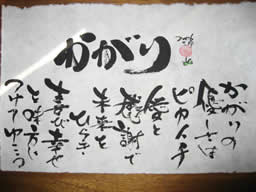 かがり
かがりの
優しさは
ピカイチ
愛と
感謝で
未来と
ひらき
喜び幸せ
と味方に
つけてゆこう